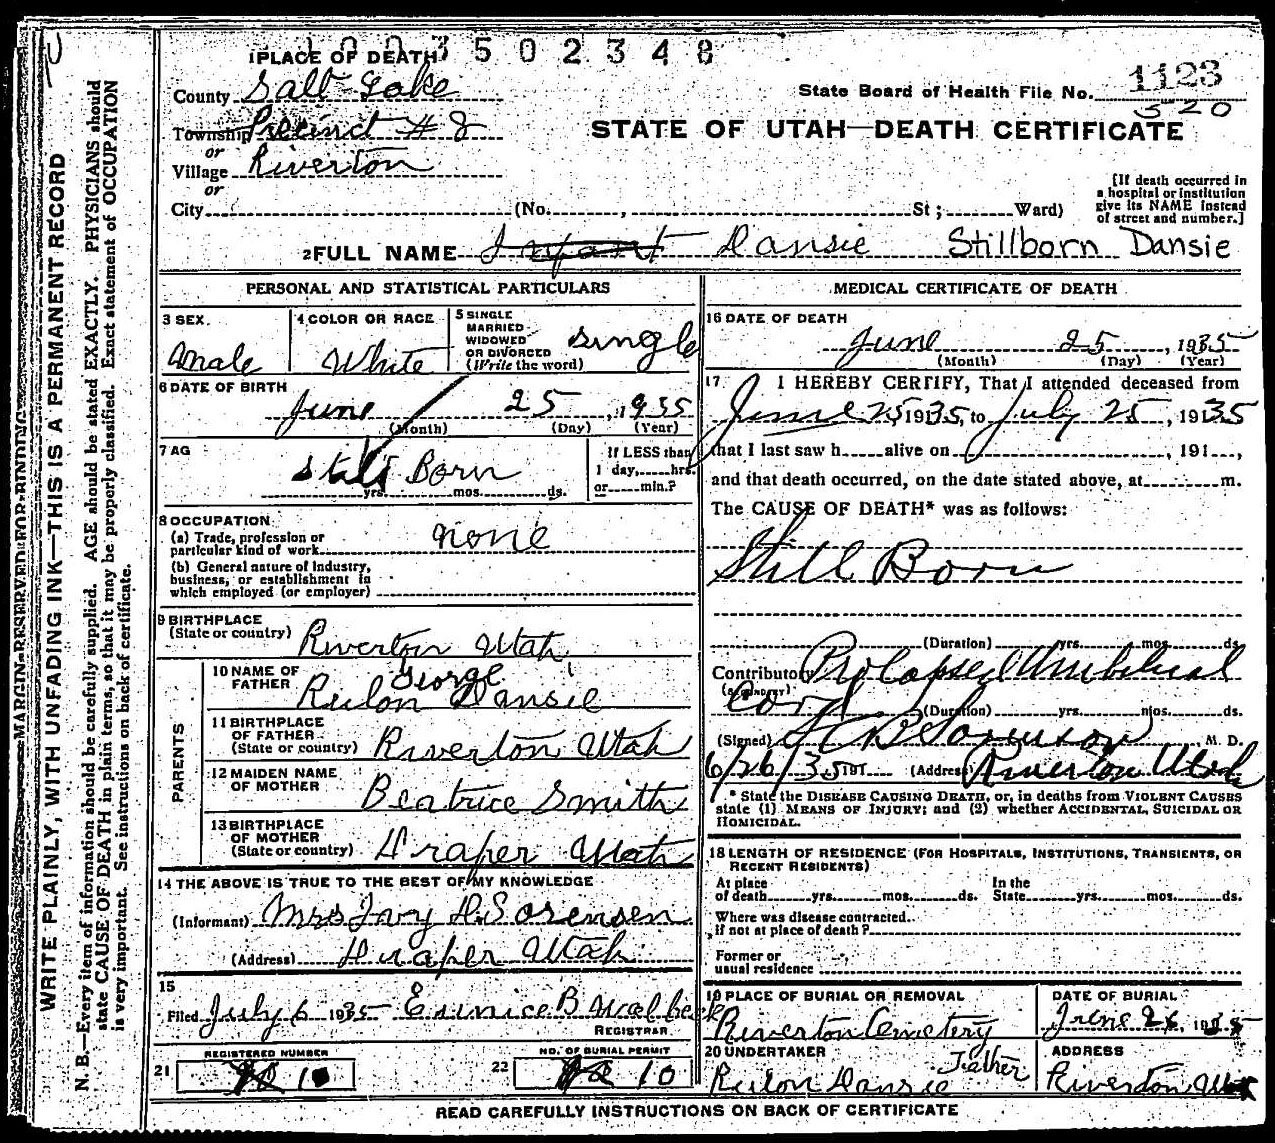 1003502348
1 PLACE OF DEATH
County Salt Lake
State Board of Health File No. 1123
520
Township Precinct # 8
or
Village Riverton
or
City (No. , St; Ward)
STATE OF UTAH—DEATH CERTIFICATE
[If death occurred in
a hospital or institution
give its NAME instead
of street and number.]
2 FULL NAME Infant Dansie Stillborn Dansie
PERSONAL AND STATISTICAL PARTICULARS
3 SEX
male
4 COLOR OR RACE
White
5 SINGLE
MARRIED
WIDOWED
OR DIVORCED
(Write the word)
single
6 DATE OF BIRTH
June 25, 1935
(Month) (Day) (Year)
7 AG
Still Born
yrs. mos. ds.
If LESS than
1 day, hrs.
or min.?
8 OCCUPATION
(a) Trade, profession or
particular kind of work none
(b) General nature of industry,
business, or establishment in
which employed (or employer)
9 BIRTHPLACE
(State or country) Riverton Utah
PARENTS
10 NAME OF
FATHER
George
Rulon Dansie
11 BIRTHPLACE
OF FATHER
(State or country) Riverton Utah
12 MAIDEN NAME
OF MOTHER
Beatrice Smith
13 BIRTHPLACE
OF MOTHER
(State or country) Draper Utah
14 THE ABOVE IS TRUE TO THE BEST OF MY KNOWLEDGE
(Informant) Mrs Ivy D. Sorensen
(Address) Draper Utah
15
Filed July 6 1935 Eunice B Walbeck
REGISTRAR
21
REGISTERED NUMBER
10
22
NO. OF BURIAL PERMIT
10
MEDICAL CERTIFICATE OF DEATH
16 DATE OF DEATH
June 25, 1935
(Month) (Day) (Year)
17 I HEREBY CERTIFY, That I attended deceased from
June 25, 1935, to July 25, 1935
that I last saw h alive on , 191 ,
and that death occurred, on the date stated above, at m.
The CAUSE OF DEATH* was as follows:
Still Born
(Duration) yrs. mos. ds.
Contributory Prolapsed Umbilical
(SECONDARY)
Cord (Duration) yrs. mos. ds.
(Signed) Sorenson M. D.
6/26/35 191 (Address) Riverton Utah
* State the DISEASE CAUSING DEATH, or, in deaths from VIOLENT CAUSES
state (1) MEANS OF INJURY; and (2) whether ACCIDENTAL, SUICIDAL OR
HOMICIDAL.
18 LENGTH OF RESIDENCE (FOR HOSPITALS, INSTITUTIONS, TRANSIENTS, OR
RECENT RESIDENTS)
At place
of death yrs. mos. ds.
In the
State yrs. mos. ds.
Where was disease contracted
if not at place of death?
Former or
usual residence
19 PLACE OF BURIAL OR REMOVAL
Riverton Cemetery
DATE OF BURIAL
June 26, 1935
20 UNDERTAKER
Rulon Dansie Father
ADDRESS
Riverton Utah
READ CAREFULLY INSTRUCTIONS ON BACK OF CERTIFICATE
MARGIN RESERVED FOR BINDING
WRITE PLAINLY, WITH UNFADING INK—THIS IS A PERMANENT RECORD
N. B.—Every item of information should be carefully supplied. AGE should be stated EXACTLY. PHYSICIANS should
state CAUSE OF DEATH in plain terms, so that it may be properly classified. Exact statement of OCCUPATION
is very important. See instructions on back of certificate.